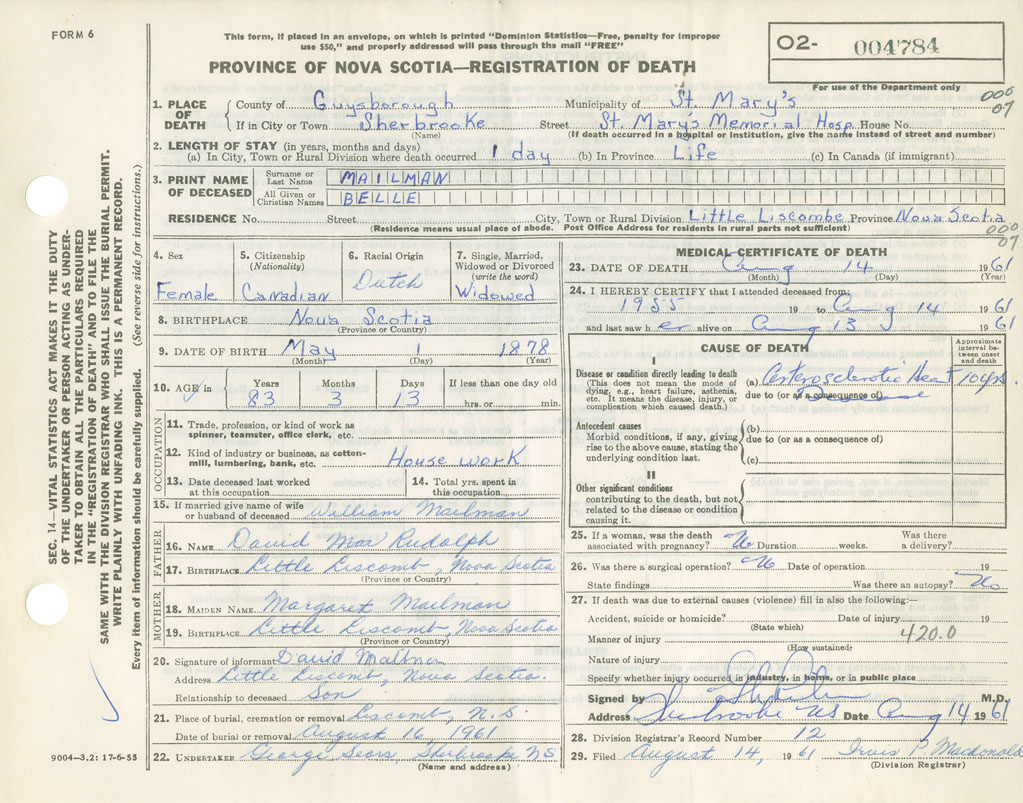 FORM 6
This form, if placed in an envelope, on which is printed "Dominion Statistics—Free, penalty for improper
use $50," and properly addressed will pass through the mail "FREE"
PROVINCE OF NOVA SCOTIA—REGISTRATION OF DEATH
02- 004784
For use of the Department only
000
07
1. PLACE OF DEATH
County of Guysborough Municipality of St. Mary's
If in City or Town Sherbrooke Street St. Mary's Memorial Hosp. House No.
(Name) (If death occurred in a hospital or institution, give the name instead of street and number)
2. LENGTH OF STAY (in years, months and days)
(a) In City, Town or Rural Division where death occurred 1 day (b) In Province Life (c) In Canada (if immigrant)
3. PRINT NAME OF DECEASED
Surname or Last Name MAILMAN
All Given or Christian Names BELLE
RESIDENCE No. Street City, Town or Rural Division Little Liscombe Province Nova Scotia
(Residence means usual place of abode. Post Office Address for residents in rural parts not sufficient)
000
07
4. Sex Female
5. Citizenship (Nationality) Canadian
6. Racial Origin Dutch
7. Single, Married, Widowed or Divorced (write the word) Widowed
8. BIRTHPLACE Nova Scotia
(Province or Country)
9. DATE OF BIRTH May 1 1878
(Month) (Day) (Year)
10. AGE in Years 83 Months 3 Days 13 If less than one day old hrs. or min.
OCCUPATION
11. Trade, profession, or kind of work as spinner, teamster, office clerk, etc.
12. Kind of industry or business, as cotton-mill, lumbering, bank, etc. House work
13. Date deceased last worked at this occupation
14. Total yrs. spent in this occupation
15. If married give name of wife or husband of deceased William Mailman
FATHER
16. NAME David Mac Rudolph
17. BIRTHPLACE Little Liscomb, Nova Scotia
(Province or Country)
MOTHER
18. MAIDEN NAME Margaret Mailman
19. BIRTHPLACE Little Liscomb, Nova Scotia
(Province or Country)
20. Signature of informant David Mailman
Address Little Liscomb, Nova Scotia.
Relationship to deceased Son
21. Place of burial, cremation or removal Liscomb, N.S.
Date of burial or removal August 16, 1961
22. UNDERTAKER George Sears, Sherbrooke NS
(Name and address)
MEDICAL CERTIFICATE OF DEATH
23. DATE OF DEATH Aug 14 1961
(Month) (Day) (Year)
24. I HEREBY CERTIFY that I attended deceased from:
1955 19 to Aug 14 1961
and last saw h er alive on Aug 13 1961
CAUSE OF DEATH
Approximate interval between onset and death
I
Disease or condition directly leading to death
(This does not mean the mode of dying, e.g., heart failure, asthenia, etc. It means the disease, injury, or complication which caused death.)
(a) Arterosclerotic Heart 10 yrs.
due to (or as a consequence of)
Antecedent causes
Morbid conditions, if any, giving rise to the above cause, stating the underlying condition last.
(b)
due to (or as a consequence of)
(c)
II
Other significant conditions
contributing to the death, but not related to the disease or condition causing it.
25. If a woman, was the death associated with pregnancy? No Duration weeks. Was there a delivery?
26. Was there a surgical operation? No Date of operation 19
State findings Was there an autopsy? No
27. If death was due to external causes (violence) fill in also the following:—
Accident, suicide or homicide? Date of injury 19
(State which)
Manner of injury 420.0
(How sustained)
Nature of injury
Specify whether injury occurred in industry, in home, or in public place
Signed by M.D.
Address Sherbrooke NS Date Aug 14 1961
28. Division Registrar's Record Number 12
29. Filed August 14, 1961 Irvis P. Macdonald
(Division Registrar)
SEC. 14—VITAL STATISTICS ACT MAKES IT THE DUTY
OF THE UNDERTAKER OR PERSON ACTING AS UNDER-
TAKER TO OBTAIN ALL THE PARTICULARS REQUIRED
IN THE "REGISTRATION OF DEATH" AND TO FILE THE
SAME WITH THE DIVISION REGISTRAR WHO SHALL ISSUE THE BURIAL PERMIT.
WRITE PLAINLY WITH UNFADING INK. THIS IS A PERMANENT RECORD.
Every item of information should be carefully supplied. (See reverse side for instructions.)
9004—3.2: 17-6-55